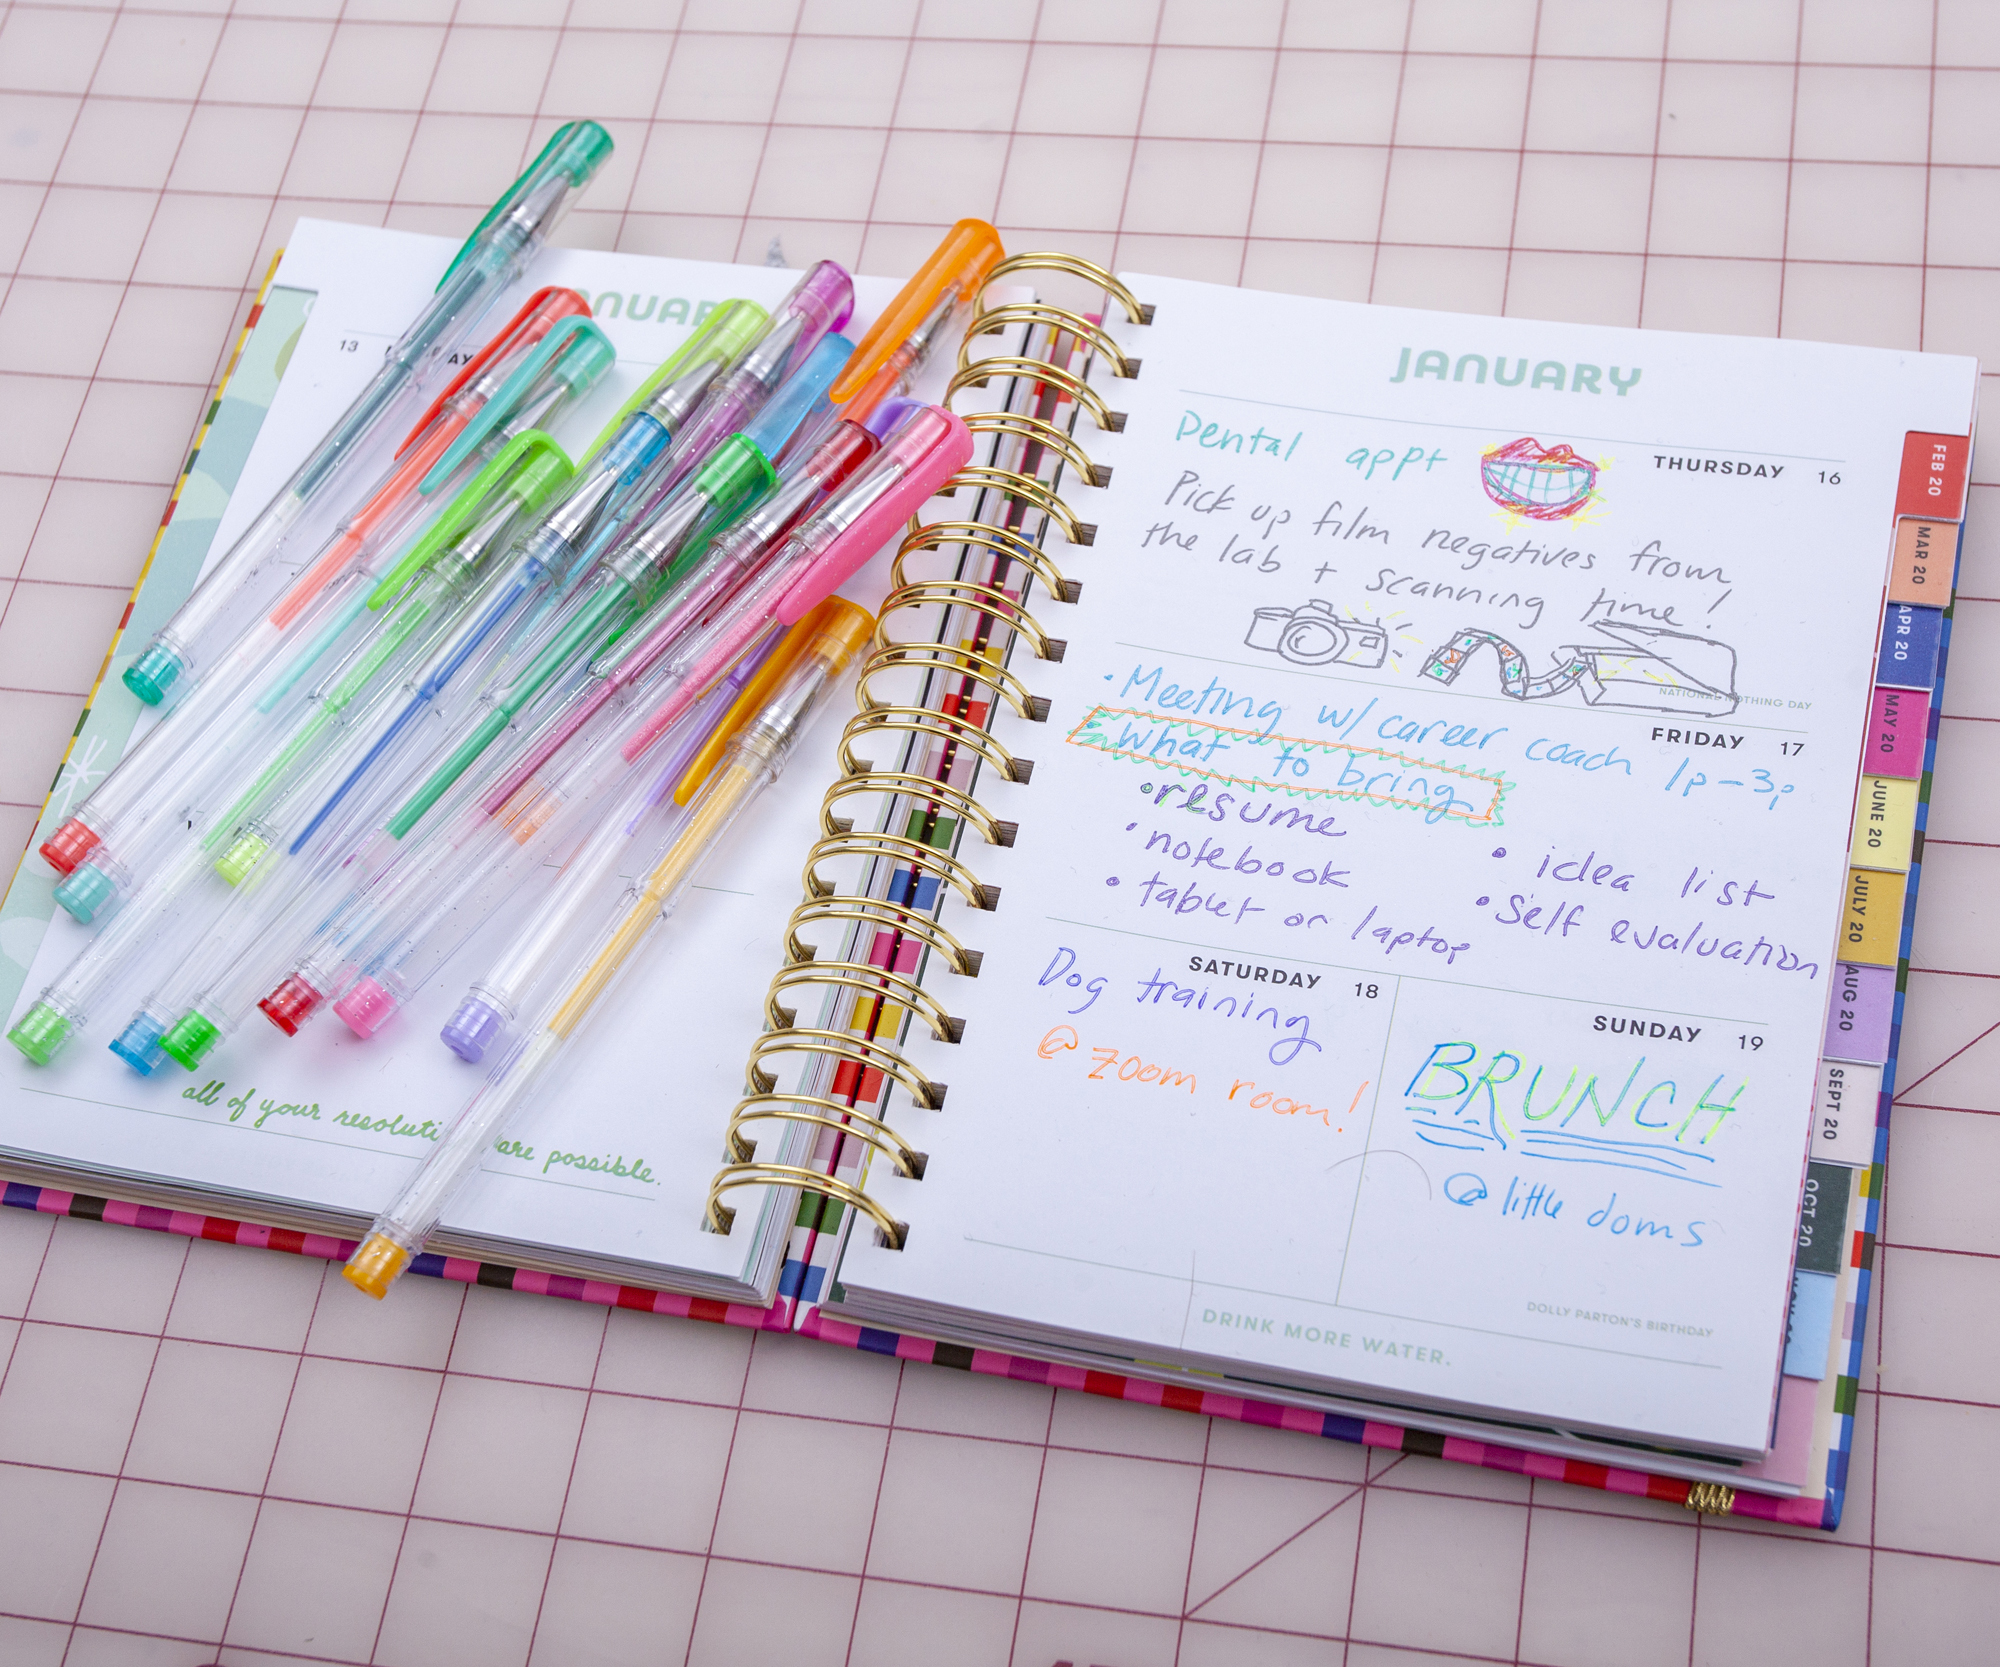 13
all of your resoluti are possible.
JANUARY
Dental appt
THURSDAY 16
Pick up film negatives from
the lab + scanning time!
NATIONAL NOTHING DAY
• Meeting w/ career coach 1p-3p
FRIDAY 17
• What to bring
• resume
• notebook
• tablet or laptop
• idea list
• Self evaluation
SATURDAY 18
Dog training
@ zoom room!
SUNDAY 19
BRUNCH
@ little doms
DOLLY PARTON'S BIRTHDAY
DRINK MORE WATER.
FEB 20
MAR 20
APR 20
MAY 20
JUNE 20
JULY 20
AUG 20
SEPT 20
OCT 20